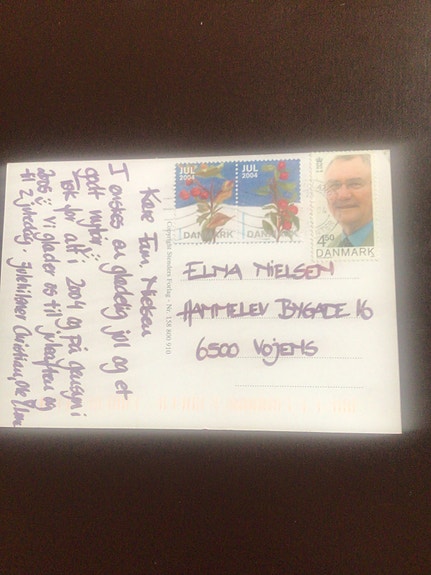 Kære Fam. Nielsen
I ønskes en glædelig jul og et
godt nytår
Tak for alt i 2004 og på gensyn i
2005 Vi glæder os til juleaften og
til 2. juledag. Julehilsner Christian, Ole
Copyright Stenders Forlag - Nr. 158 800 910
JUL
2004
DANMARK
JUL
2004
DANMARK
4.50
DANMARK
ELNA NIELSEN
HAMMELEV BYGADE 16
6500 Vojens